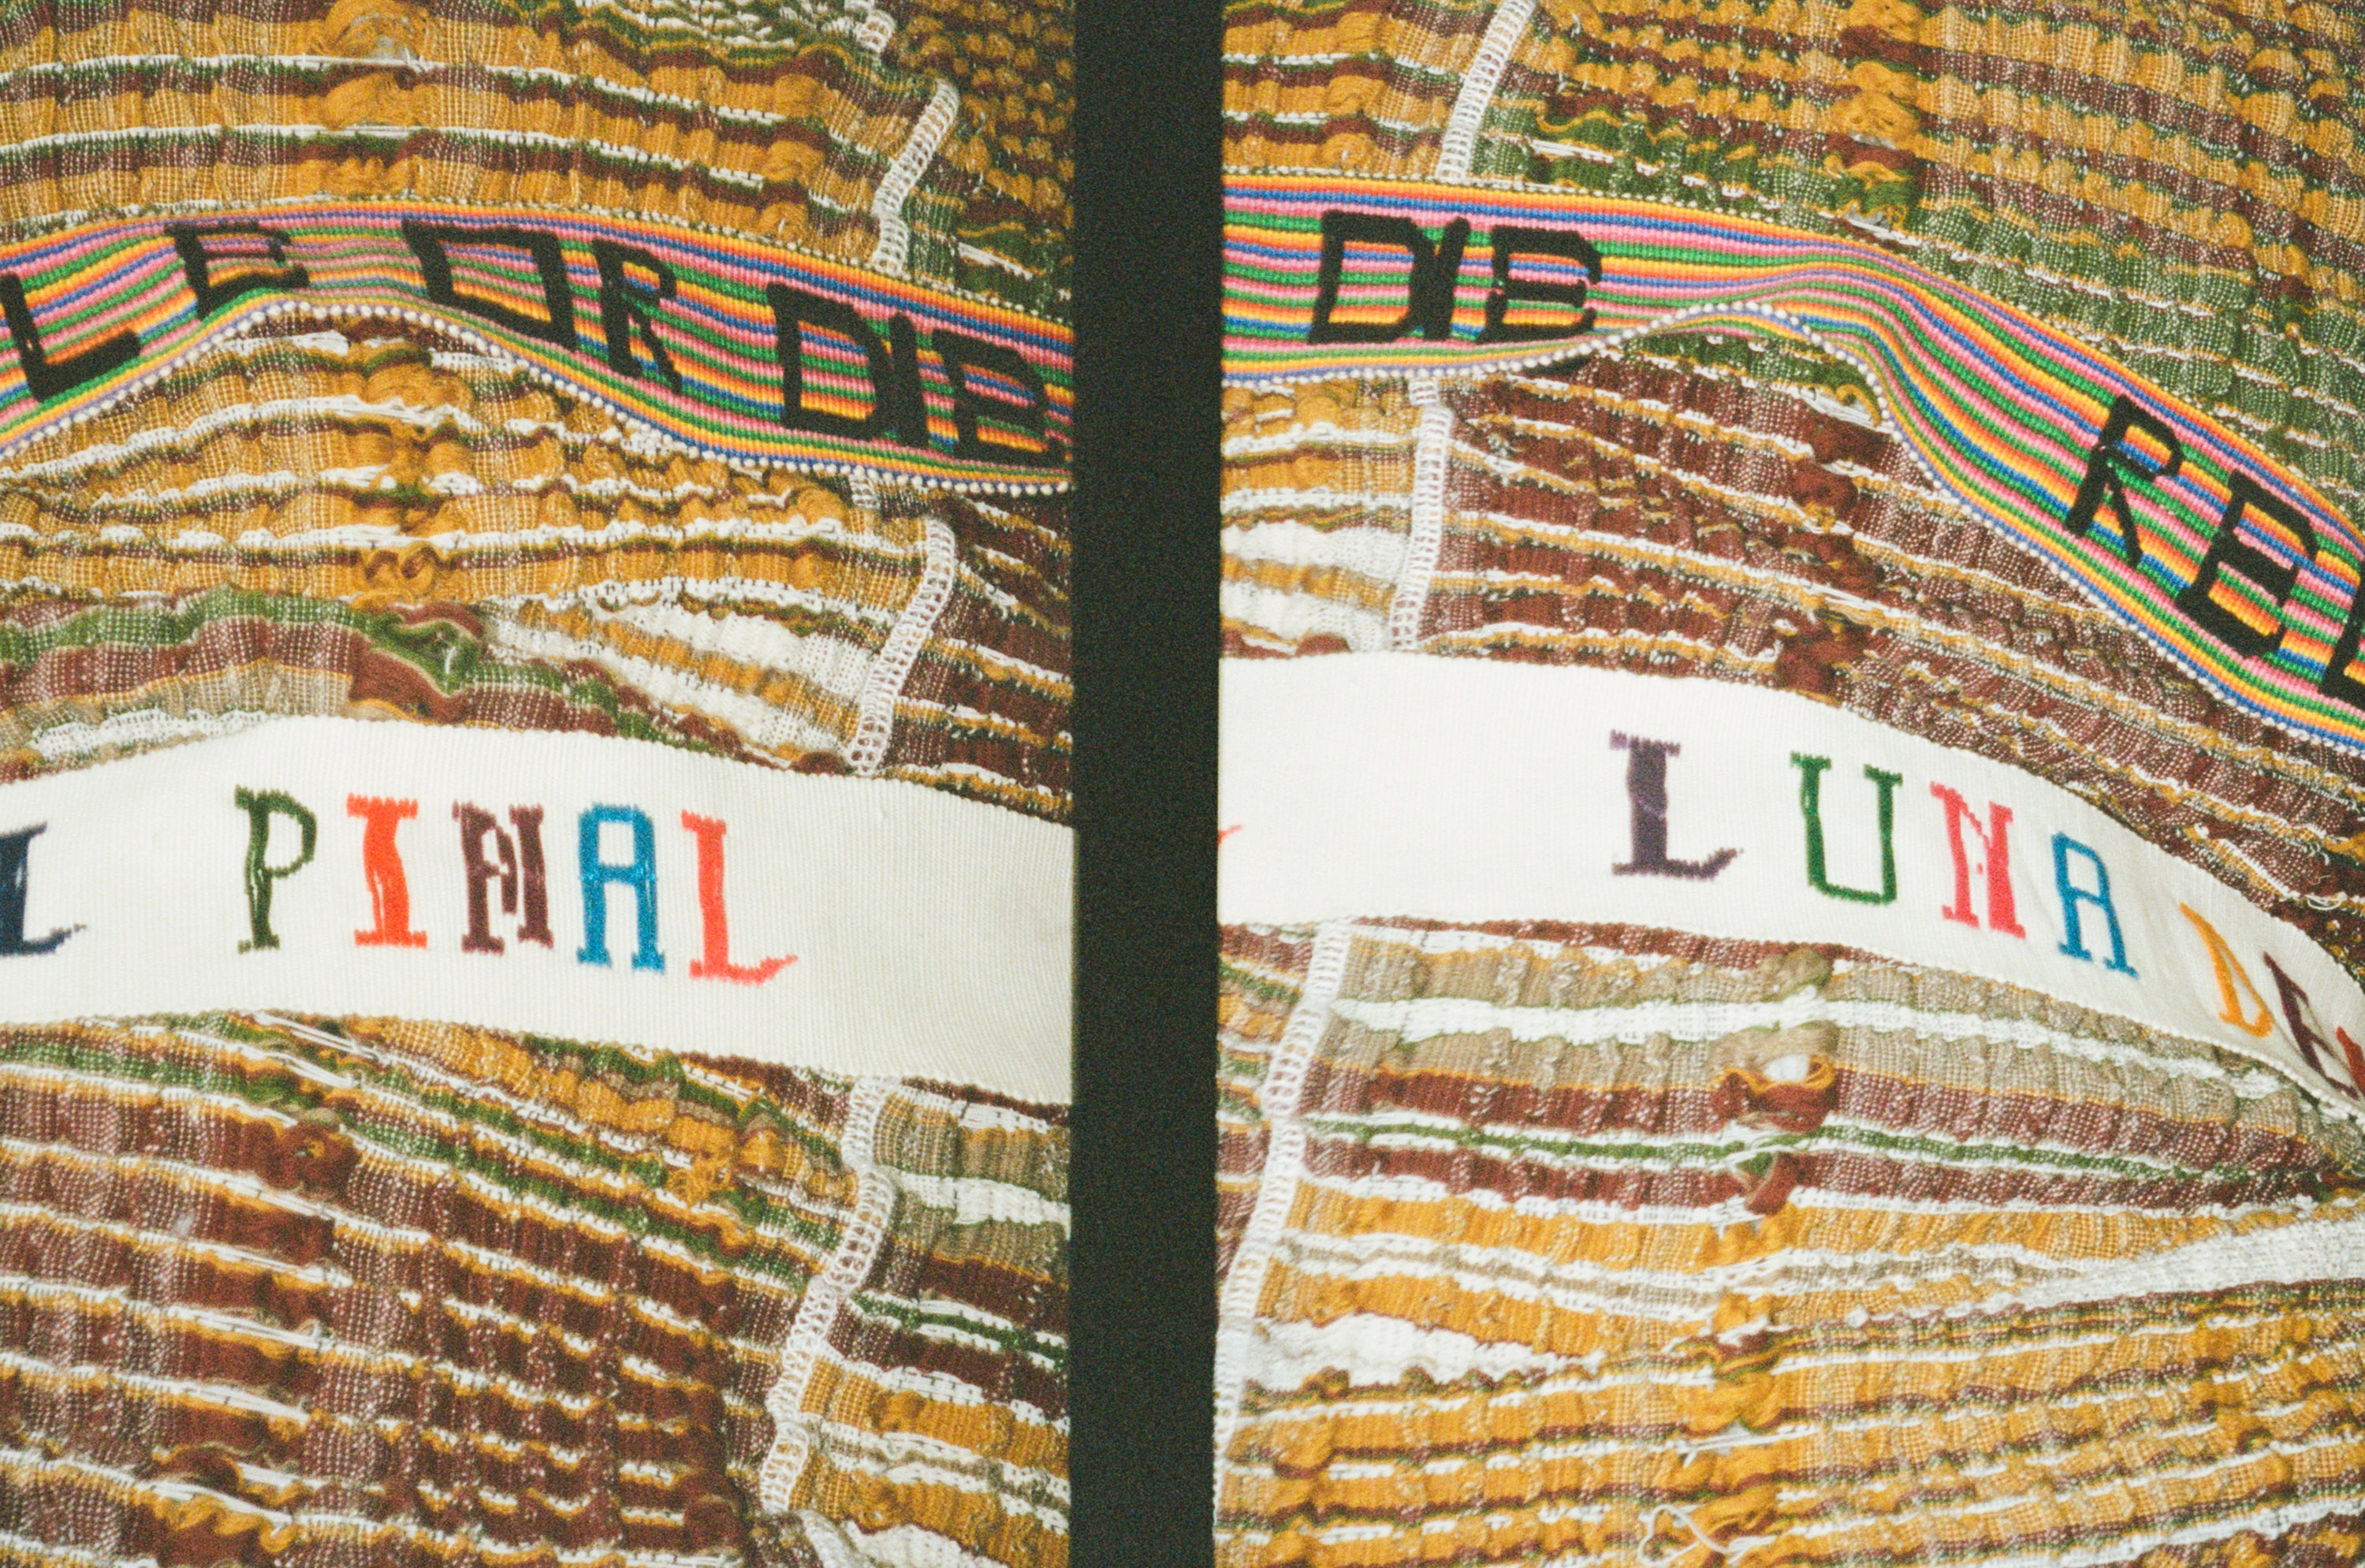 LE OR DIE
L PINAL
DIE REL
LUNA DE